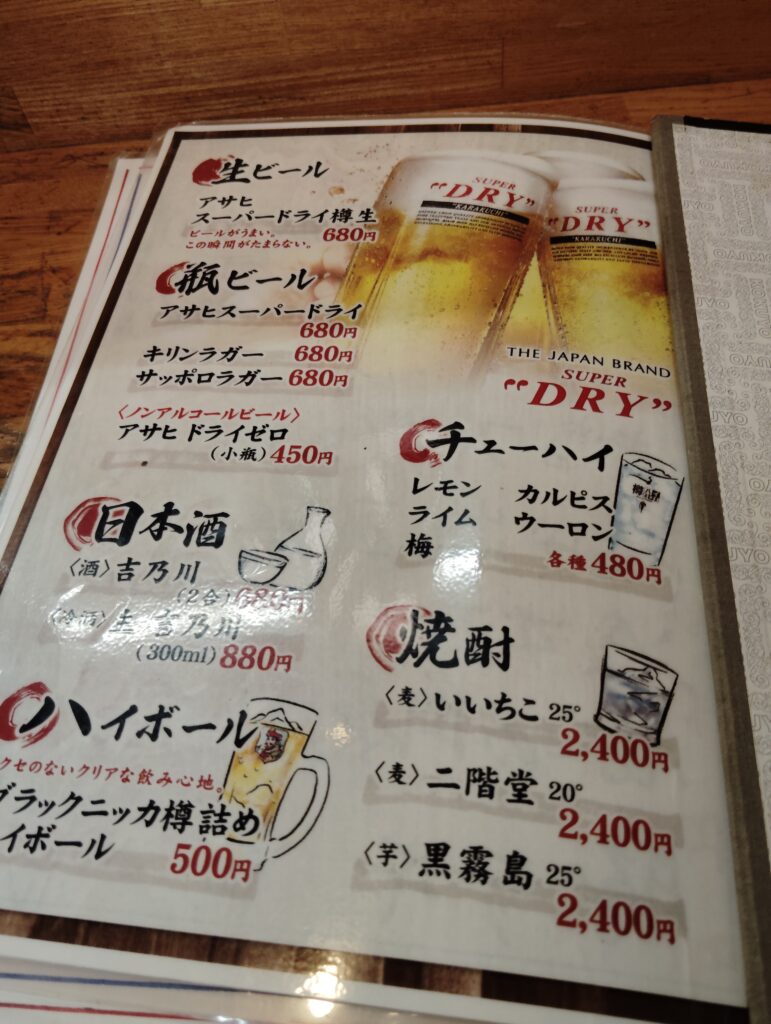 生ビール
アサヒ
スーパードライ樽生
ビールがうまい。
この瞬間がたまらない。 680円
瓶ビール
アサヒスーパードライ
680円
キリンラガー 680円
サッポロラガー 680円
〈ノンアルコールビール〉
アサヒ ドライゼロ
(小瓶) 450円
日本酒
〈酒〉吉乃川
(2合) 680円
〈冷酒〉生 吉乃川
(300ml) 880円
ハイボール
クセのないクリアな飲み心地。
ブラックニッカ樽詰め
イボール 500円
SUPER
"DRY"
"KARAKUCHI"
SUPER
"DRY"
"KARAKUCHI"
THE JAPAN BRAND
SUPER
"DRY"
チューハイ
レモン カルピス
ライム ウーロン
梅
各種 480円
焼酎
〈麦〉いいちこ 25°
2,400円
〈麦〉二階堂 20°
2,400円
〈芋〉黒霧島 25°
2,400円